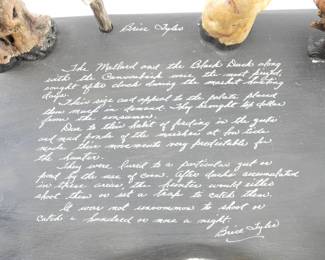 Brice Tyles
The Mallard and the Black Duck along
with the Canvasback were the most prized,
sought after ducks during the market hunting
days.
Their size and appeal to the palate placed
them most in demand. They brought top dollar
from the consumer.
Due to this habit of feeding in the guts
and mud ponds of the marshes at low tide
made their movements very predictable for
the hunter.
They were lured to a particular gut or
pond by the use of corn. After ducks accumulated
in these areas, the hunter would either
shoot them or set a trap to catch them.
It was not uncommon to shoot or
catch a hundred or more a night.
Brice Tyles